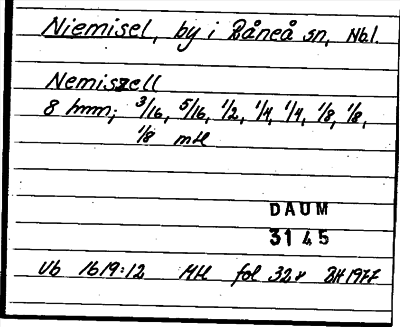 Niemisel, by i Råneå sn, Nbl.
Nemiszell
8 hmm; 3/16, 5/16, 1/2, 1/4, 1/4, 1/8, 1/8,
1/8 mtl
DAUM
3145
Vb 1619:12 Mtl fol 32v BH 1977